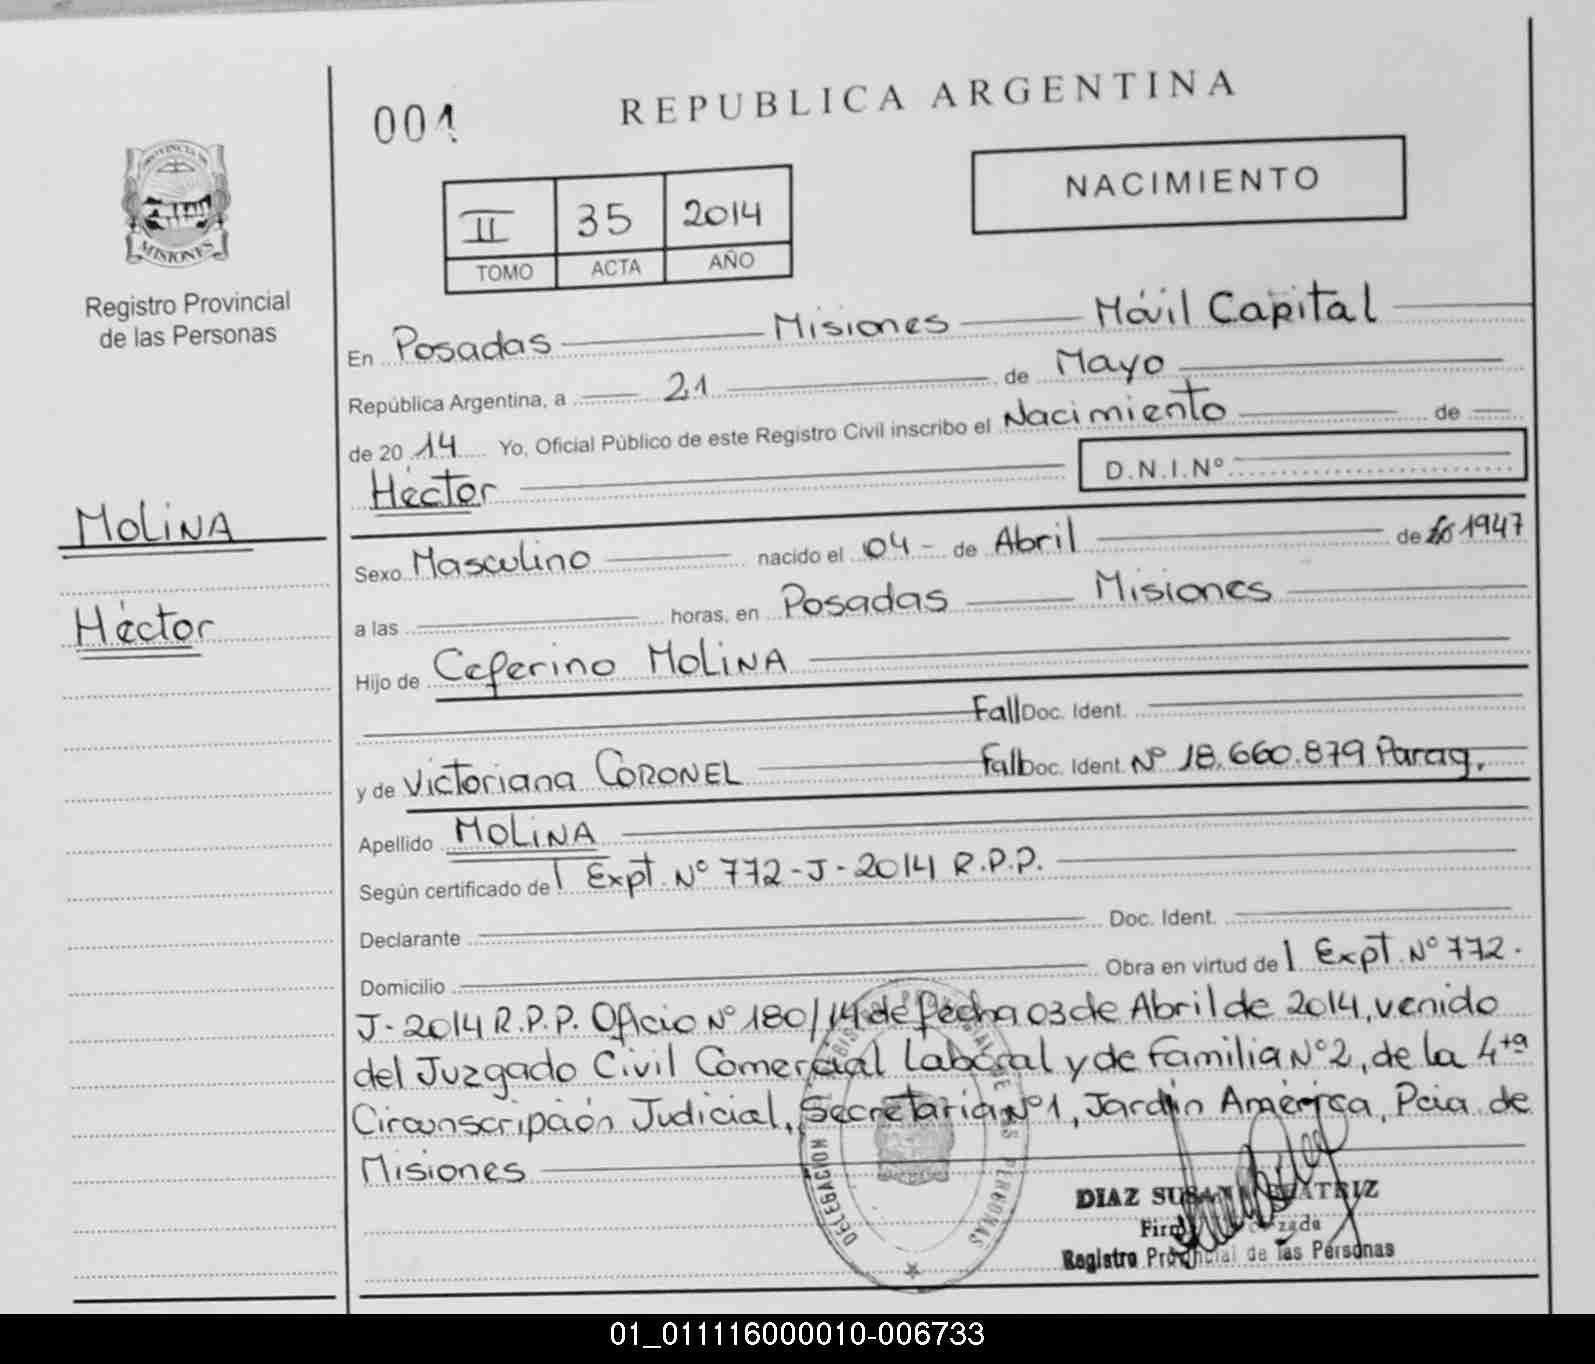 001
REPUBLICA ARGENTINA
PROVINCIA DE
MISIONES
Registro Provincial
de las Personas
II 35 2014
TOMO ACTA AÑO
NACIMIENTO
En Posadas Misiones Móvil Capital
República Argentina, a 21 de Mayo
de 20 14 Yo, Oficial Público de este Registro Civil inscribo el Nacimiento de
Héctor D.N.I.Nº
MOLINA
Héctor
Sexo Masculino nacido el 04 - de Abril de 1947
a las horas, en Posadas Misiones
Hijo de Ceferino MOLINA
Fall Doc. Ident.
y de Victoriana CORONEL Fall Doc. Ident. Nº 18.660.879 Parag.
Apellido MOLINA
Según certificado de l Expt. Nº 772-J-2014 R.P.P.
Declarante Doc. Ident.
Domicilio Obra en virtud de l Expt. Nº 772-
J-2014 R.P.P. Oficio Nº 180/14 de fecha 03 de Abril de 2014, venido
del Juzgado Civil Comercial Laboral y de Familia Nº 2, de la 4ta
Circunscripción Judicial, Secretaria Nº 1, Jardín América, Pcia. de
Misiones
DELEGACION PERSONAS
DIAZ SUSANA BEATRIZ
Registro Provincial de las Personas
01_011116000010-006733